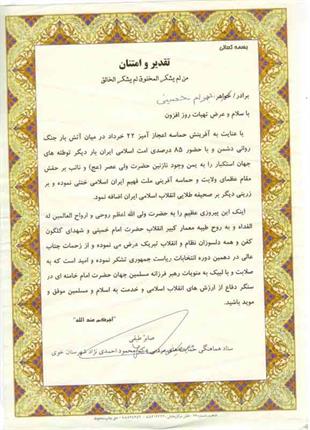 بسمه تعالی
تقدیر و امتنان
من لم یشکر المخلوق لم یشکر الخالق
برادر/خواهر
با سلام و عرض تهیات روز افزون
با عنایت به آفرینش حماسه اعجاز آمیز ۲۲ خرداد در میان آتش بار جنگ
روانی دشمن و با حضور ۸۵ درصدی امت اسلامی ایران بار دیگر توطئه های
جهان استکبار را به یمن وجود نازنین حضرت ولی عصر (عج) و نائب بر حقش
مقام عظمای ولایت و حماسه آفرینی ملت فهیم ایران اسلامی خنثی نموده و بر
زرینی دیگر بر صحیفه طلایی انقلاب اسلامی ایران اضافه نمود.
اینک این پیروزی عظیم را به حضرت ولی الله اعظم روحی و ارواح العالمین له
الفداه و به روح طیبه معمار کبیر انقلاب حضرت امام خمینی و شهدای گلگون
کفن و همه دلسوزان نظام و انقلاب تبریک عرض می نموده و از زحمات جناب
عالی در دهمین دوره انتخابات ریاست جمهوری تشکر نموده و امید است که به
صلابت و با لبیک به منویات رهبر فرزانه مسلمین جهان حضرت امام خامنه ای در
سنگر دفاع از ارزش های انقلاب اسلامی و خدمت به اسلام و مسلمین موفق و
موید باشید.
"اجرکم عند الله"
صابر
ستاد هماهنگی محمود احمدی نژاد شهرستان خوی